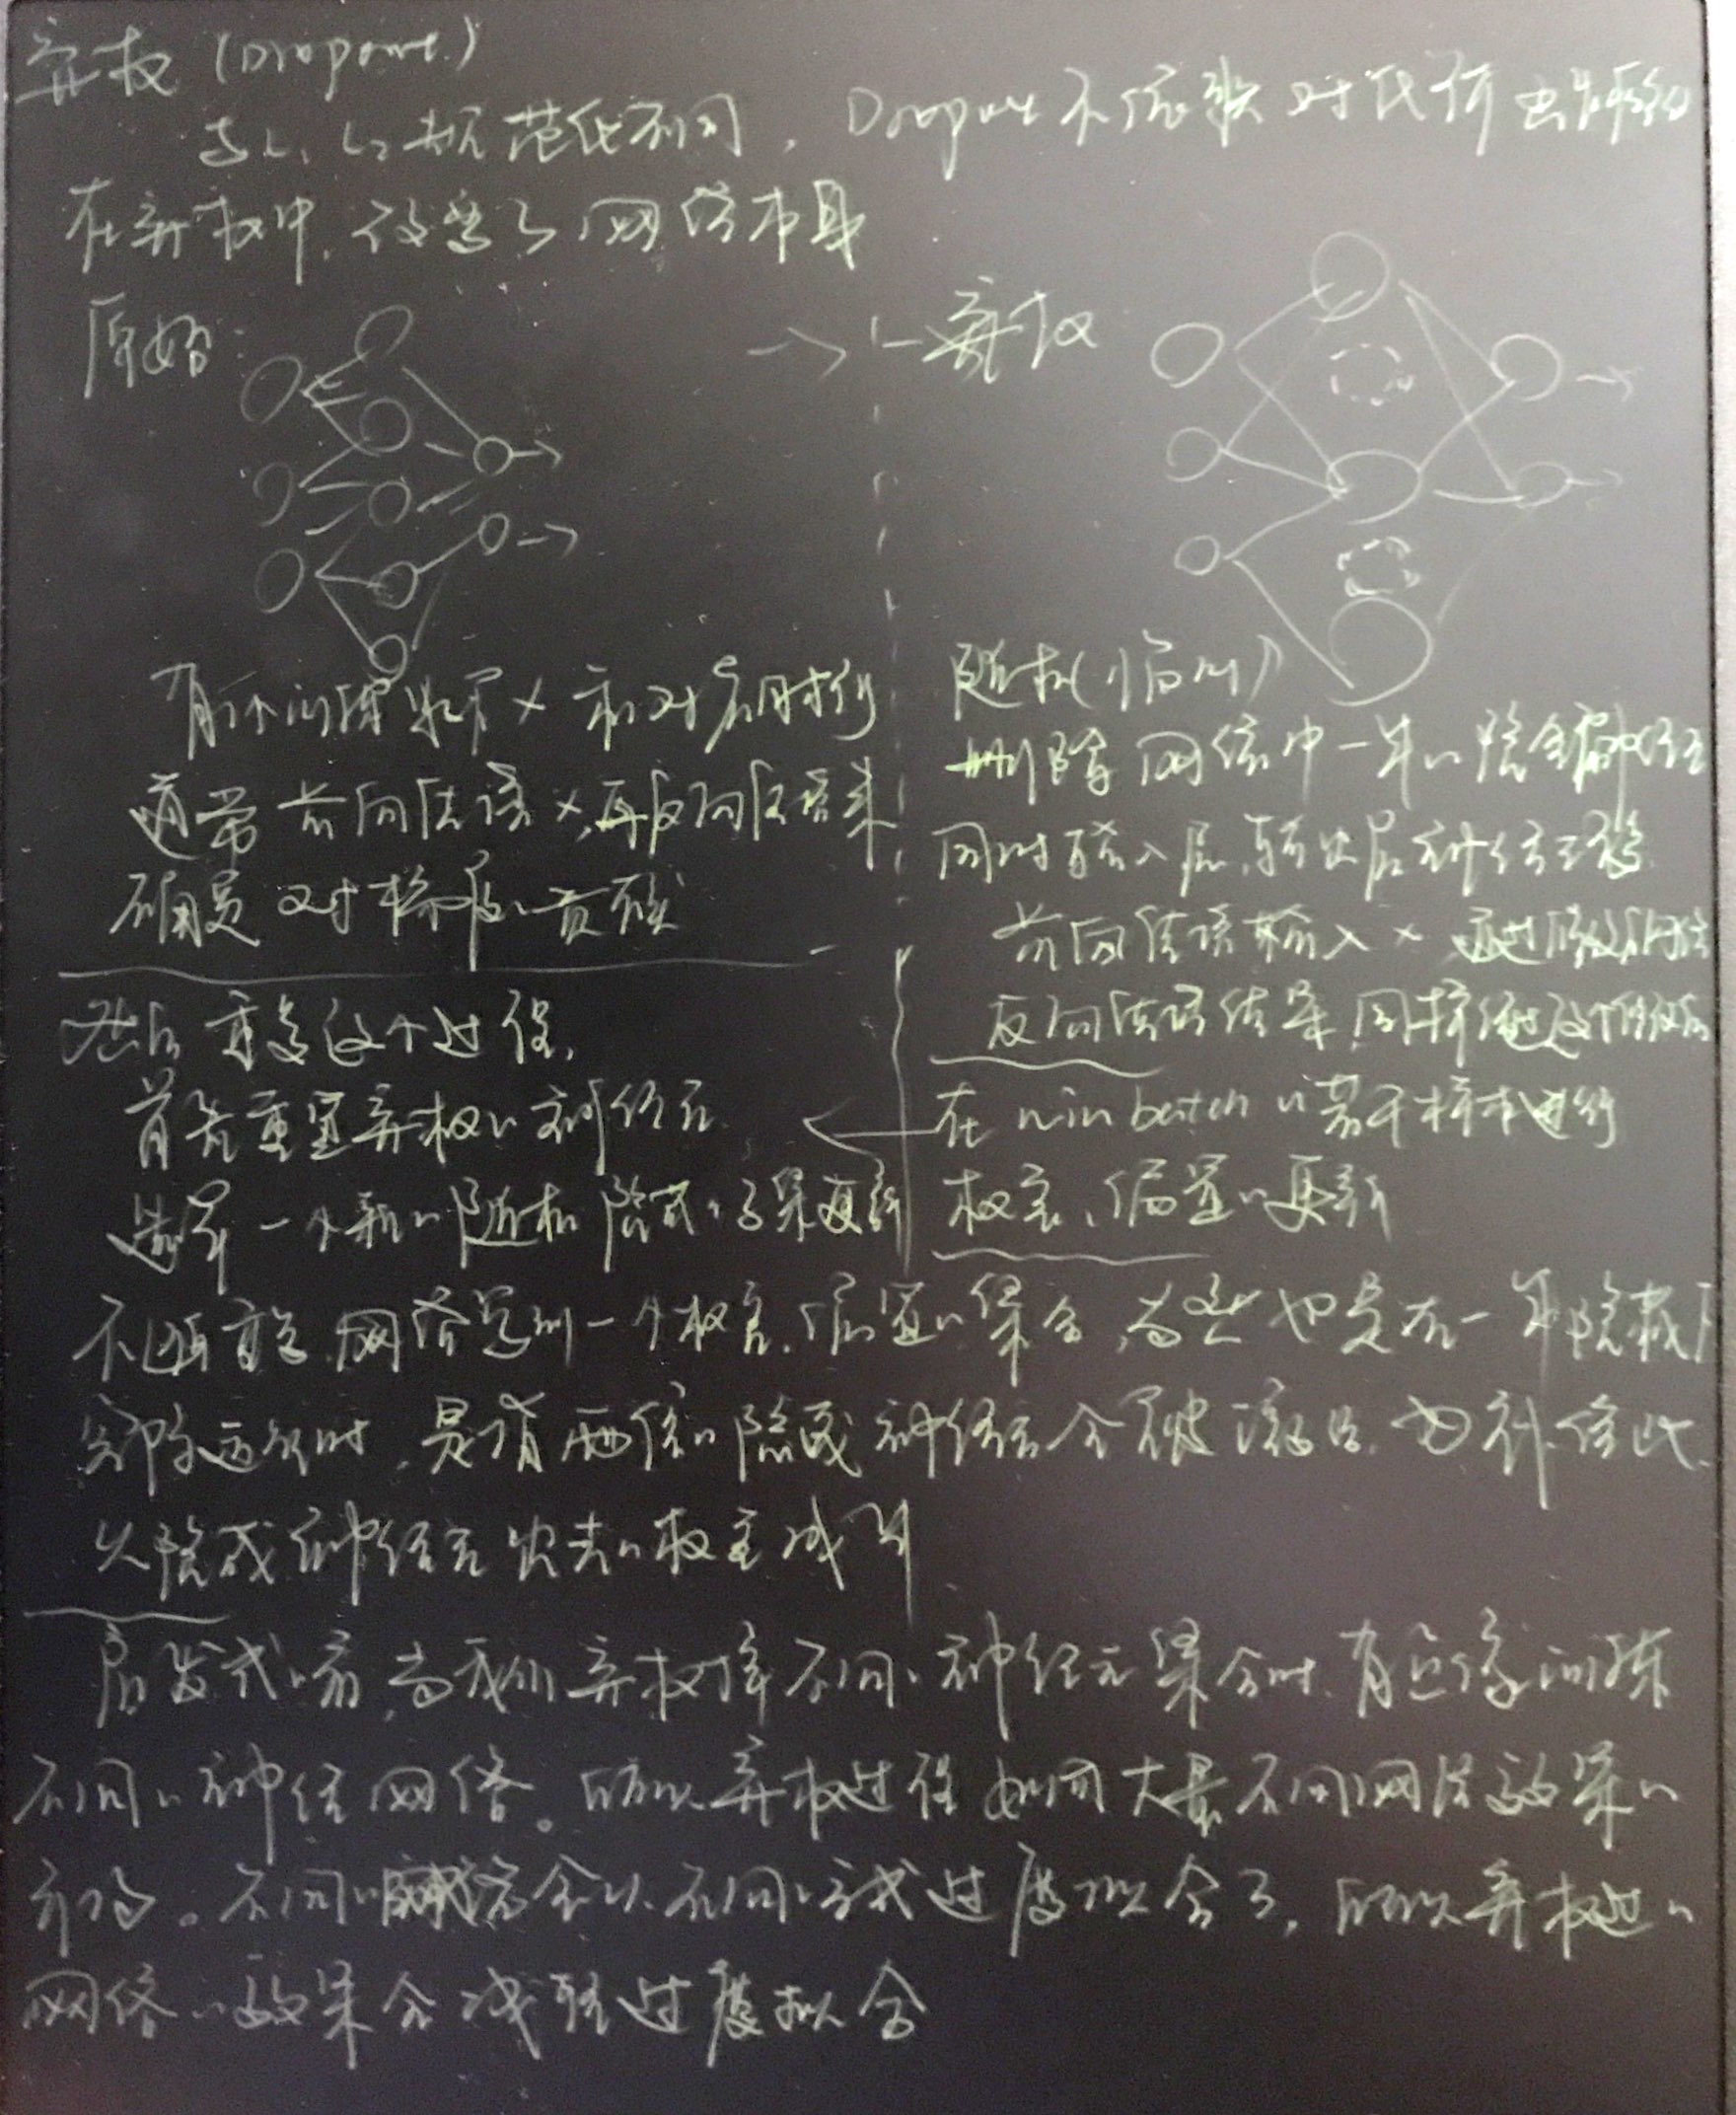 弃权 (Dropout)
与L1、L2规范化不同，Dropout 不依赖对代价
在弃权中，改变了网络本身
原始：
有个训练数据 x 和对应目标
通常 前向传递 x，再反向传播来
确定对梯度的贡献
→ 弃权
随机(临时)
删除网络中一半的隐藏神经元
同时输入层、输出层神经元不变
前向传递输入 x 通过
反向传播结果，同样
在 mini batch 的若干样本进行
权重、偏置的更新
然后重复这个过程，
首先重置弃权的神经元
选择一个新的随机隐藏的子集更新
不断重复，网络学到一个权重、偏置的集合，当然也是在一半隐藏
实际运行时，是有两倍的隐藏神经元会被激活，为补偿此
从隐藏神经元出去的权重减半
启发式的看，当我们弃权掉不同的神经元集合时，有点像训练
不同的神经网络。所以弃权过程如同大量不同网络效果的
平均。不同的网络会以不同的方式过度拟合了，所以弃权过的
网络的效果会减轻过度拟合